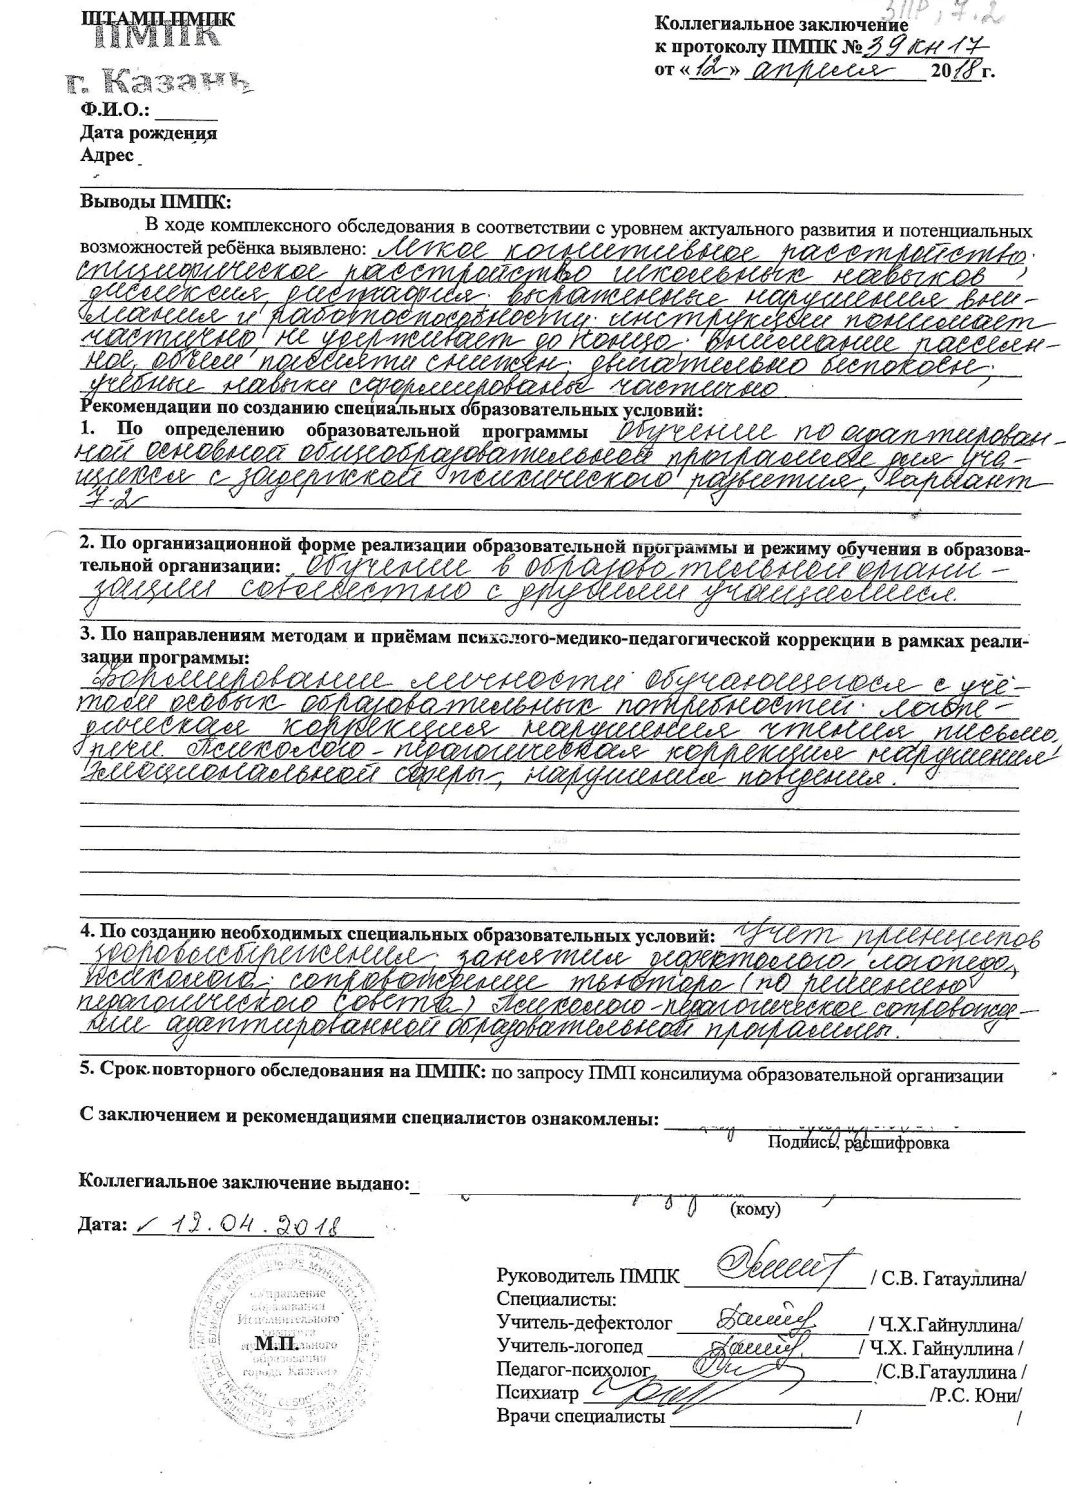 ЗПР, 7.2
ШТАМП ПМПК
ПМПК
г. Казань
Коллегиальное заключение
к протоколу ПМПК № 39 кн 17
от «12» апреля 2018 г.
Ф.И.О.:
Дата рождения
Адрес
Выводы ПМПК:
В ходе комплексного обследования в соответствии с уровнем актуального развития и потенциальных
возможностей ребёнка выявлено: легкое когнитивное расстройство.
специфическое расстройство школьных навыков,
дислексия, дисграфия. выраженные нарушения вни-
мания и работоспособности. инструкции понимает
частично, не удерживает до конца. внимание рассеян-
ное, объем памяти снижен. двигательно беспокоен,
учебные навыки сформированы частично.
Рекомендации по созданию специальных образовательных условий:
1. По определению образовательной программы обучение по адаптирован-
ной основной общеобразовательной программе для уча-
щихся с задержкой психического развития, вариант
7.2
2. По организационной форме реализации образовательной программы и режиму обучения в образова-
тельной организации: обучение в образовательной органи-
зации совместно с другими учащимися.
3. По направлениям методам и приёмам психолого-медико-педагогической коррекции в рамках реали-
зации программы:
Формирование личности обучающегося с учё-
том особых образовательных потребностей. логопе-
дическая коррекция нарушения чтения, письма,
речи. Психолого-педагогическая коррекция нарушения
эмоциональной сферы, нарушения поведения.
4. По созданию необходимых специальных образовательных условий: Учет принципов
здоровьесбережения. занятия дефектолога, логопеда,
психолога. сопровождение тьютора (по решению
педагогического совета). Психолого-педагогическое сопровожде-
ние адаптированной образовательной программы.
5. Срок повторного обследования на ПМПК: по запросу ПМП консилиума образовательной организации
С заключением и рекомендациями специалистов ознакомлены:
Подпись, расшифровка
Коллегиальное заключение выдано:
(кому)
Дата: 12.04.2018
Управление
образования
Исполнительного
комитета
муниципального
образования
города Казани
М.П.
Руководитель ПМПК / С.В. Гатауллина/
Специалисты:
Учитель-дефектолог / Ч.Х.Гайнуллина/
Учитель-логопед / Ч.Х. Гайнуллина /
Педагог-психолог /С.В.Гатауллина /
Психиатр /Р.С. Юни/
Врачи специалисты / /